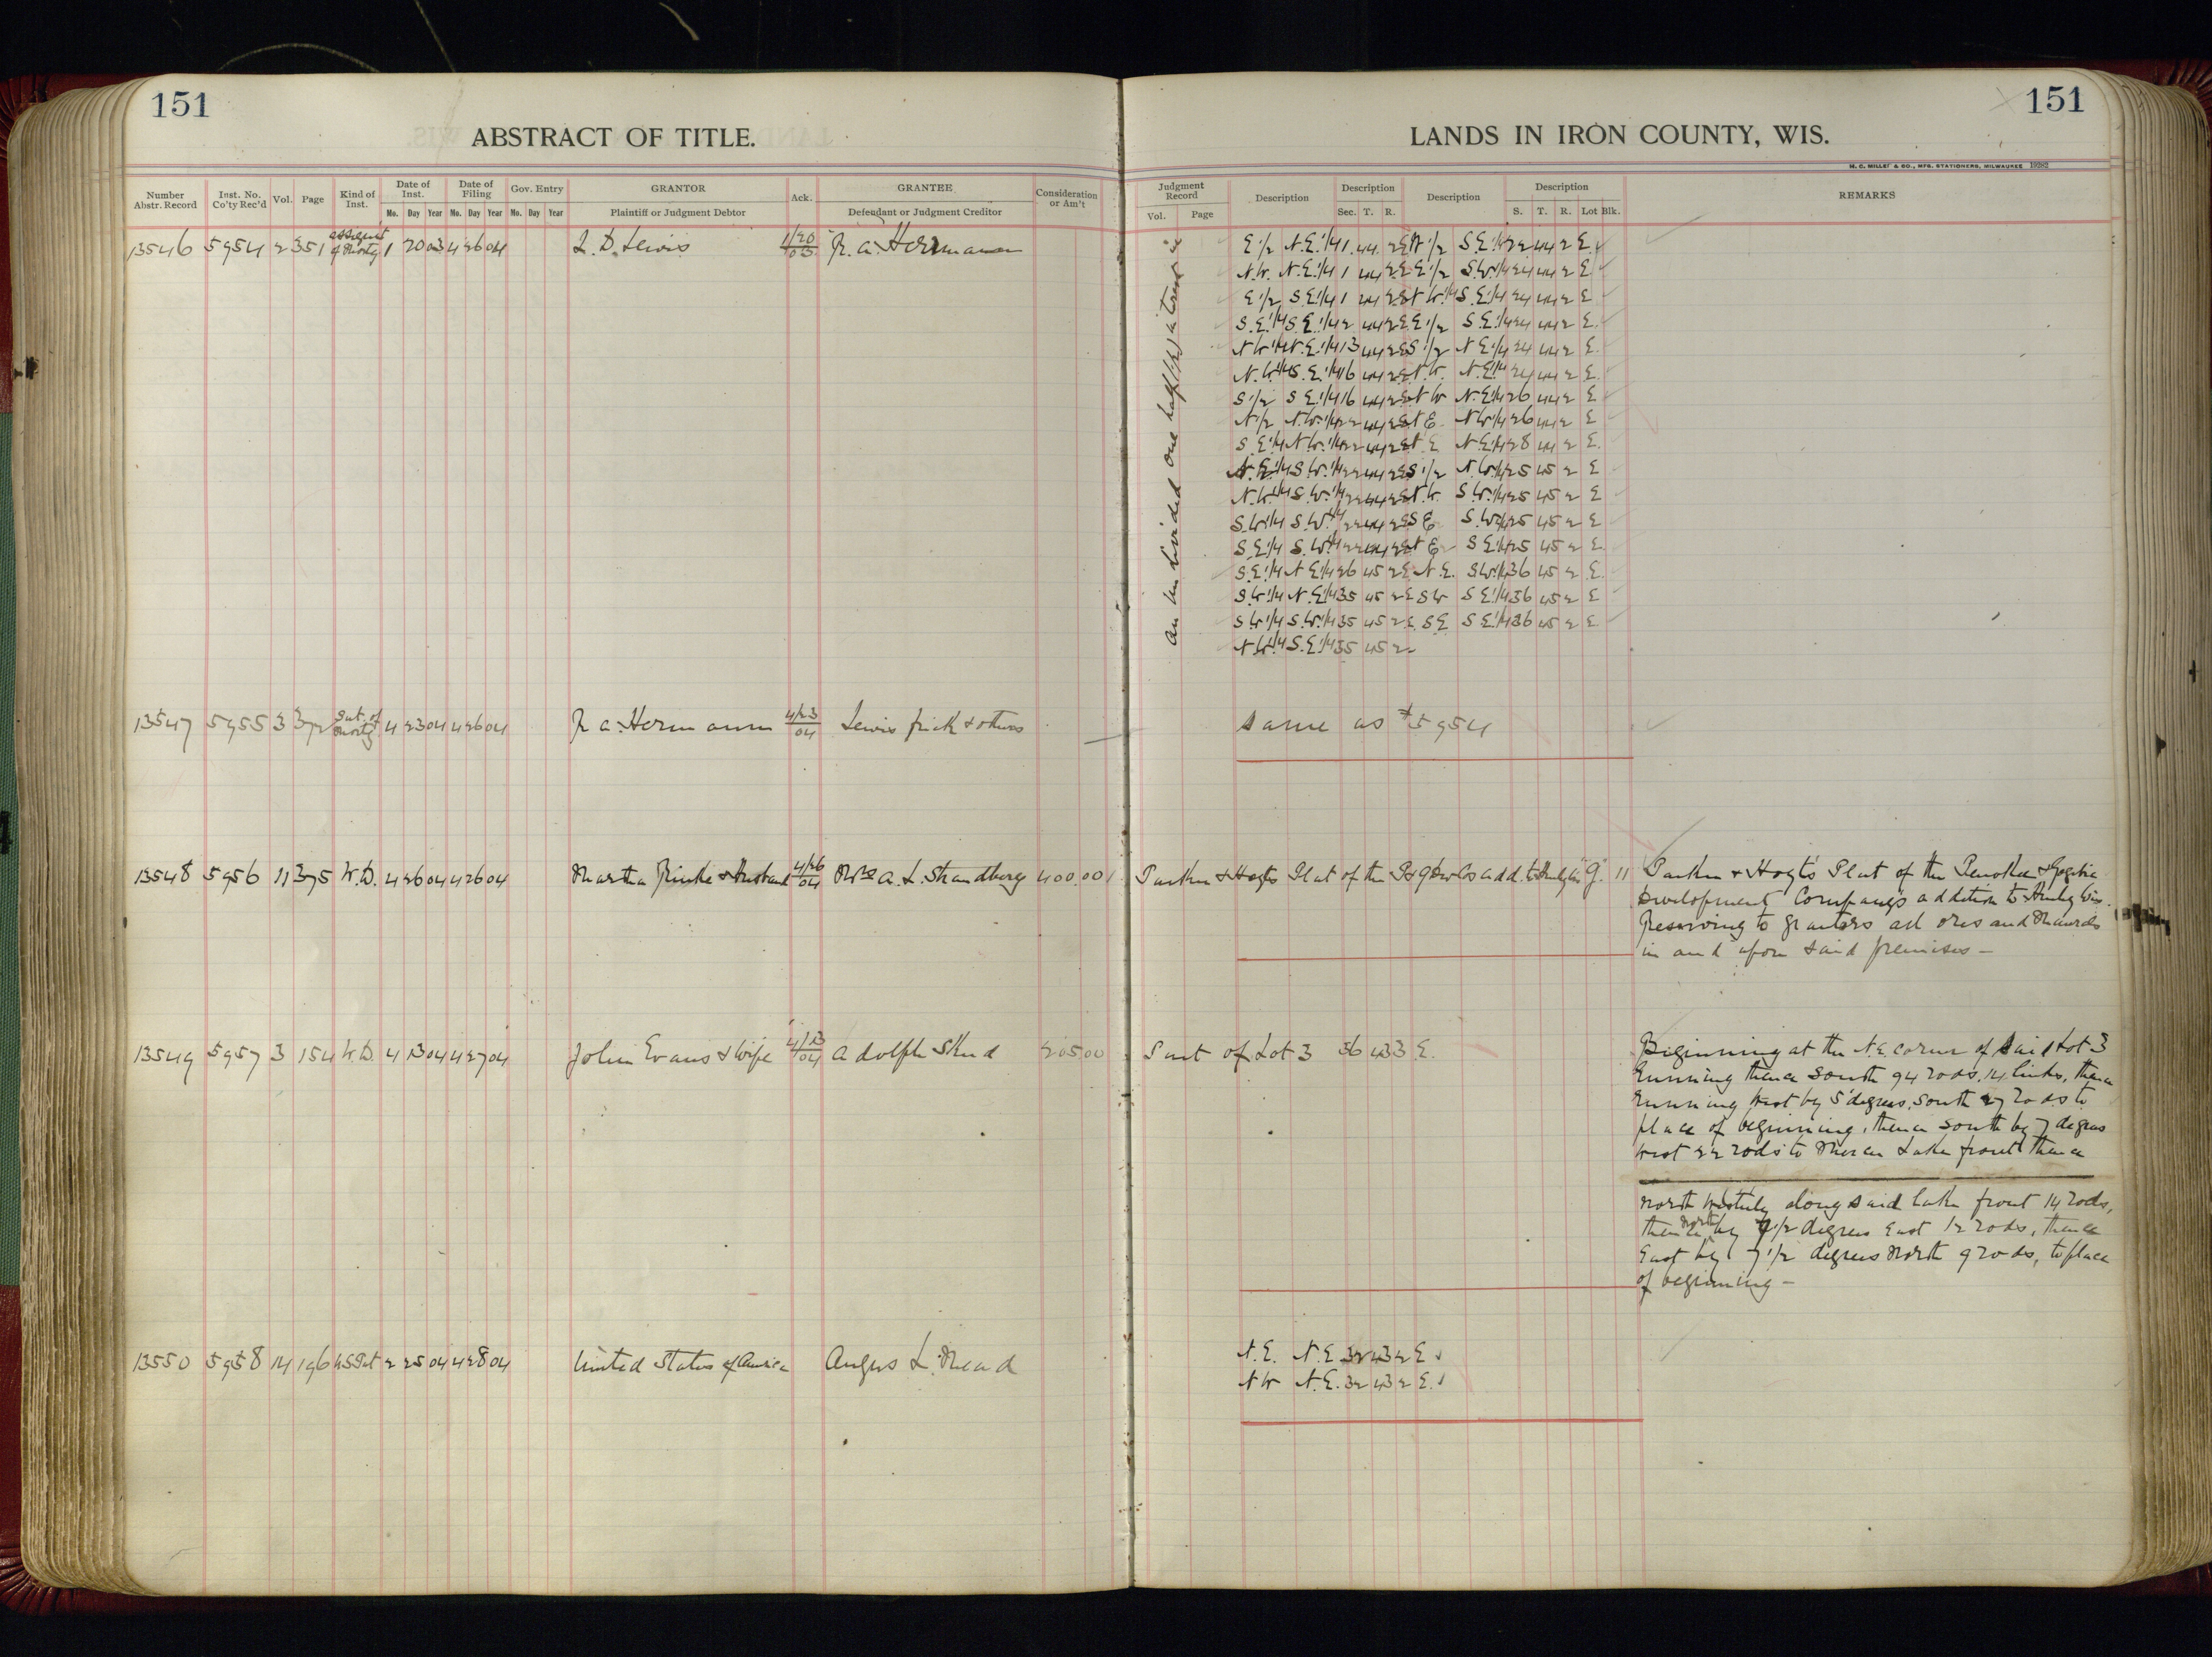 151
ABSTRACT OF TITLE.
Number Abstr. Record
Inst. No. Co'ty Rec'd
Vol.
Page
Kind of Inst.
Date of Inst.
Mo. Day Year
Date of Filing
Mo. Day Year
Gov. Entry
Mo. Day Year
GRANTOR
Plaintiff or Judgment Debtor
Ack.
GRANTEE
Defendant or Judgment Creditor
Consideration or Am't
13546 5954 2 351 assignt of Mortg 1 20 03 4 26 04 L. D. Lewis 1/20/03 R. A. Herrmann
13547 5955 3 372 Sat. of Mortg 4 23 04 4 26 04 R. A. Hermann 4/23/04 Lewis Frick & others
13548 5956 11 375 W.D. 4 26 04 4 26 04 Martha Rinke & Husband 4/26/04 Mrs A. L. Strandberg 400.00
13549 5957 3 154 W.D. 4 13 04 4 27 04 John Evans & Wife 4/13/04 Adolph Skud 205 00
13550 5958 14 196 U.S. Pat 2 25 04 4 28 04 United States of America Angus L. Mead
151
LANDS IN IRON COUNTY, WIS.
H. C. MILLER & CO., MFG. STATIONERS, MILWAUKEE 19282
Judgment Record
Vol. Page
Description
Description
Sec. T. R.
Description
Description
S. T. R. Lot Blk.
REMARKS
an undivided one half (1/2) interest in
E 1/2 N.E. 1/4 1 44 2 E W 1/2 S.E. 1/4 22 44 2 E.
N.W. N.E. 1/4 1 44 2 E E 1/2 S.W. 1/4 24 44 2 E
E 1/2 S.E. 1/4 1 44 2 E N W. 1/4 S.E. 1/4 24 44 2 E
S.E. 1/4 S.E. 1/4 2 44 2 E E 1/2 S.E. 1/4 24 44 2 E.
N W 1/4 N.E. 1/4 13 44 2 E S 1/2 N E. 1/4 24 44 2 E.
N.W. 1/4 S.E. 1/4 16 44 2 E N.W. N.E. 1/4 24 44 2 E.
S 1/2 S E. 1/4 16 44 2 E N W N.E. 1/4 26 44 2 E
N 1/2 N.W. 1/4 22 44 2 E N E. N W. 1/4 26 44 2 E
S E. 1/4 N.W. 1/4 22 44 2 E N E N.E. 1/4 28 44 2 E.
N.E. 1/4 S.W. 1/4 22 44 2 E S 1/2 N.W. 1/4 25 45 2 E
N.W. 1/4 S.W. 1/4 22 44 2 E N.W. S.W. 1/4 25 45 2 E
S.W. 1/4 S.W. 1/4 22 44 2 E S E. S.W. 1/4 25 45 2 E
S.E. 1/4 S.W. 1/4 22 44 2 E N E S E. 1/4 25 45 2 E.
S.E. 1/4 N E. 1/4 26 45 2 E N.E. S.W. 1/4 36 45 2 E.
S.W. 1/4 N.E. 1/4 35 45 2 E S W S E. 1/4 36 45 2 E
S W 1/4 S.W. 1/4 35 45 2 E. S.E S E. 1/4 36 45 2 E
N.W. 1/4 S.E. 1/4 35 45 2
Same as #5954
Parker & Hoyts Plat of the P & G Dev Cos add. to Hurley Wis "G" 11
Parker & Hoyts Plat of the Penokee & Gogebic
Development Company's addition to Hurley Wis.
Reserving to grantors all ores and Minerals
in and upon said premises —
Part of Lot 3 36 43 3 E.
Biginning at the N.E. corner of said Lot 3
Running thence South 94 rods, 14 links, thence
Running West by 5 degrees, South 27 rods to
place of beginning, thence South by 7 degrees
West 22 rods to Mercer Lake front thence
North Westerly along said Lake front 14 rods,
thence North by 7 1/2 degrees East 12 rods, thence
East by 7 1/2 degrees North 9 rods, to place
of beginning —
N.E. N.E 32 43 2 E
N W N.E. 32 43 2 E.